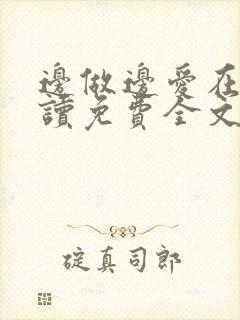 邊做邊愛在
讀免費全文
碇真司郎